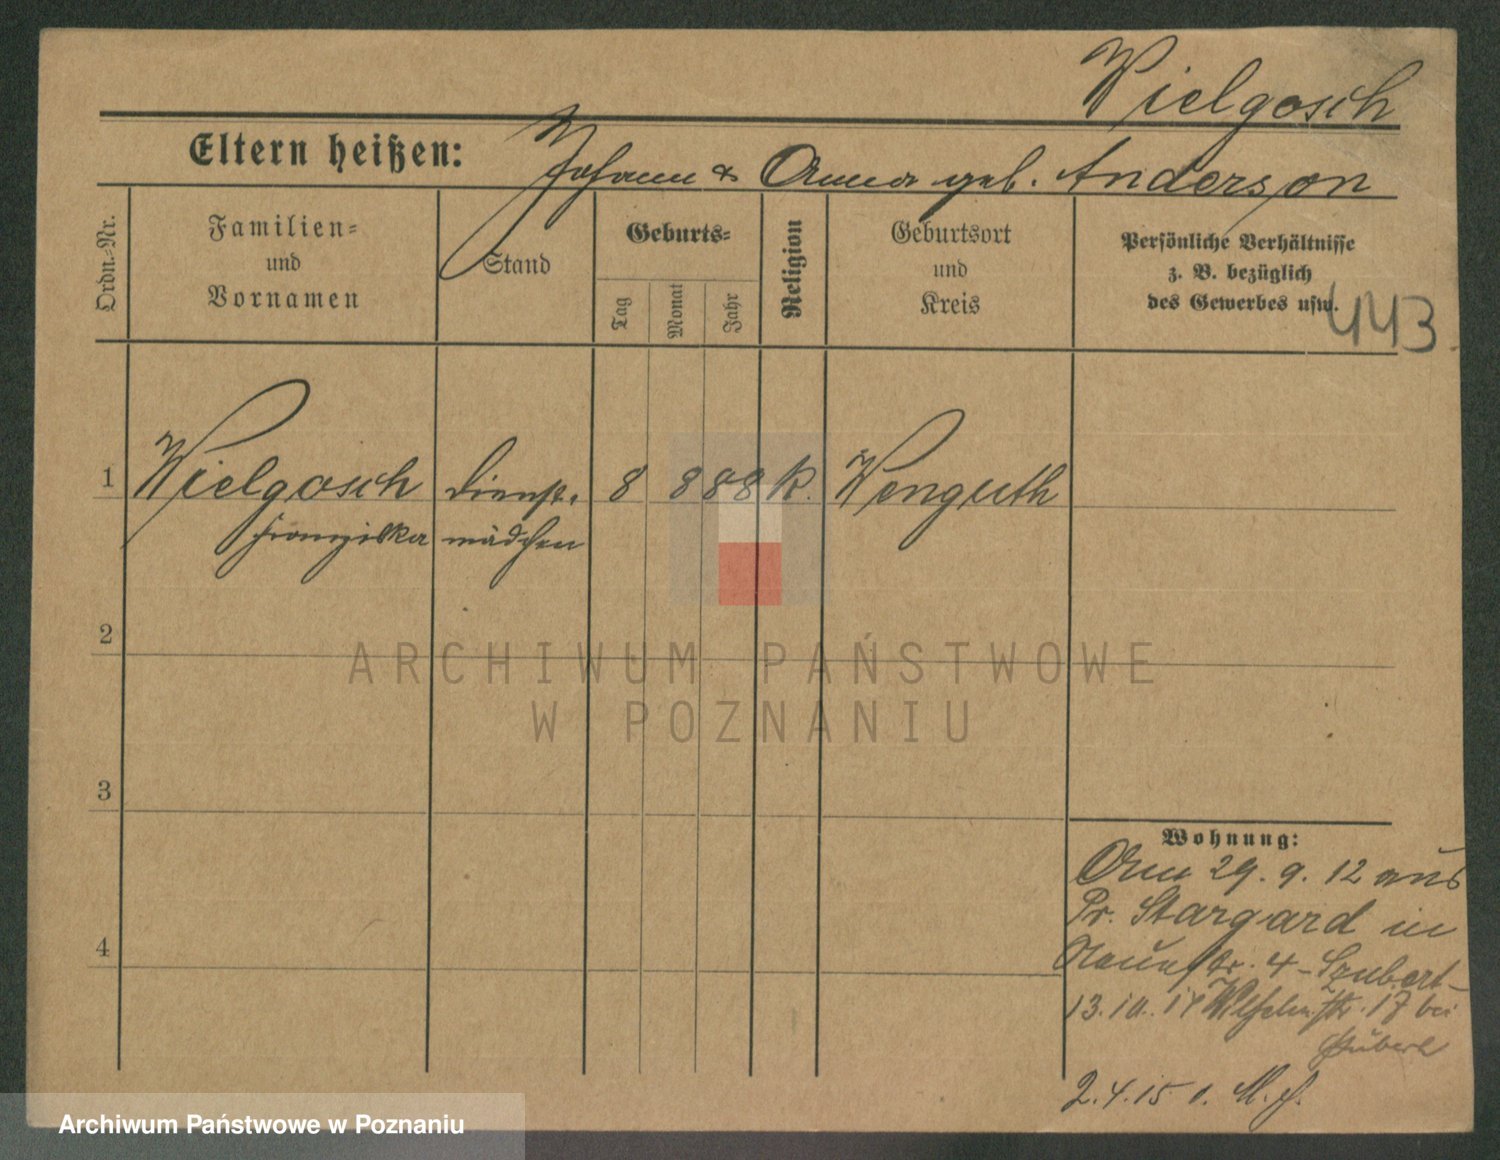 Wielgosch
Eltern heißen: Johann & Anna geb. Anderson
Ordn.-Nr.
Familien-
und
Vornamen
Stand
Geburts-
Tag
Monat
Jahr
Religion
Geburtsort
und
Kreis
Persönliche Verhältnisse
z. B. bezüglich
des Gewerbes usw.
443
1 Wielgosch Dienst- 8 8 88 k. Wenguth
Franziska mädchen
2
ARCHIWUM PAŃSTWOWE
W POZNANIU
3
4
Wohnung:
Am 29. 9. 12 aus
Pr. Stargard in
4 -
13. 10. 14 Wilhelmstr. 17 bei
2. 4. 15
Archiwum Państwowe w Poznaniu